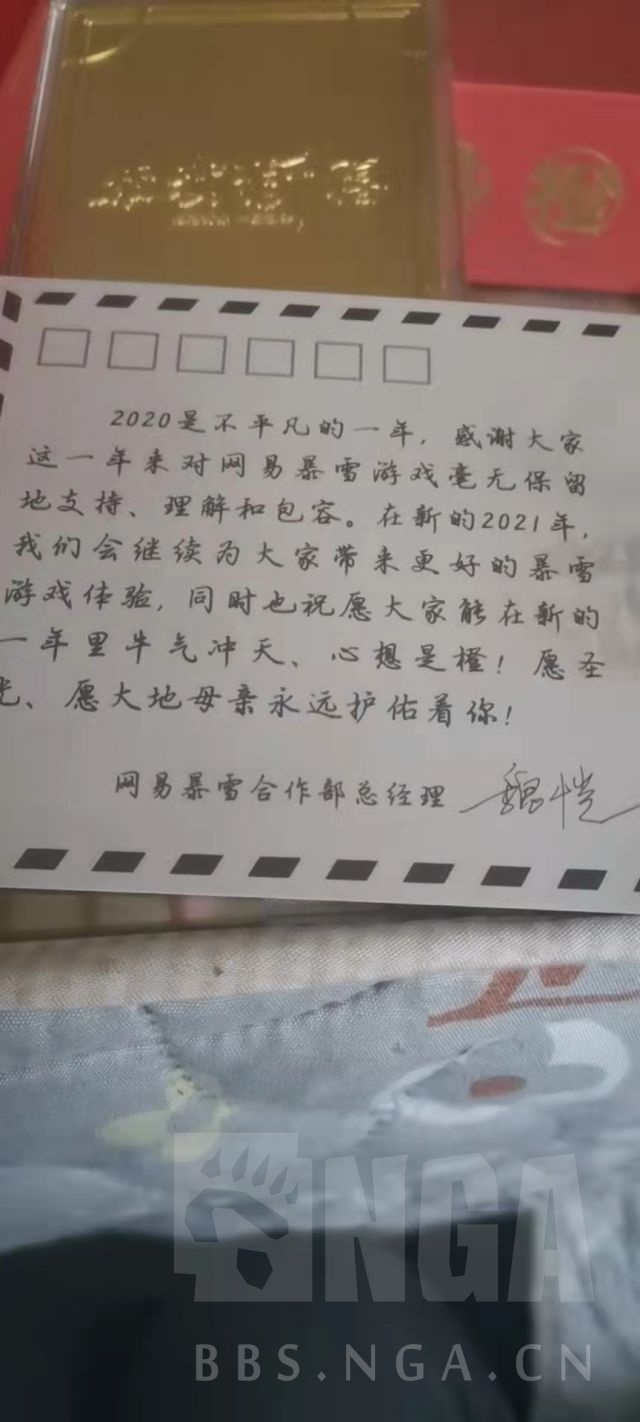 橙
2020是不平凡的一年，感谢大家
这一年来对网易暴雪游戏毫无保留
地支持、理解和包容。在新的2021年，
我们会继续为大家带来更好的暴雪
游戏体验，同时也祝愿大家能在新的
一年里牛气冲天、心想是橙！愿圣
光、愿大地母亲永远护佑着你！
网易暴雪合作部总经理
NGA
BBS.NGA.CN